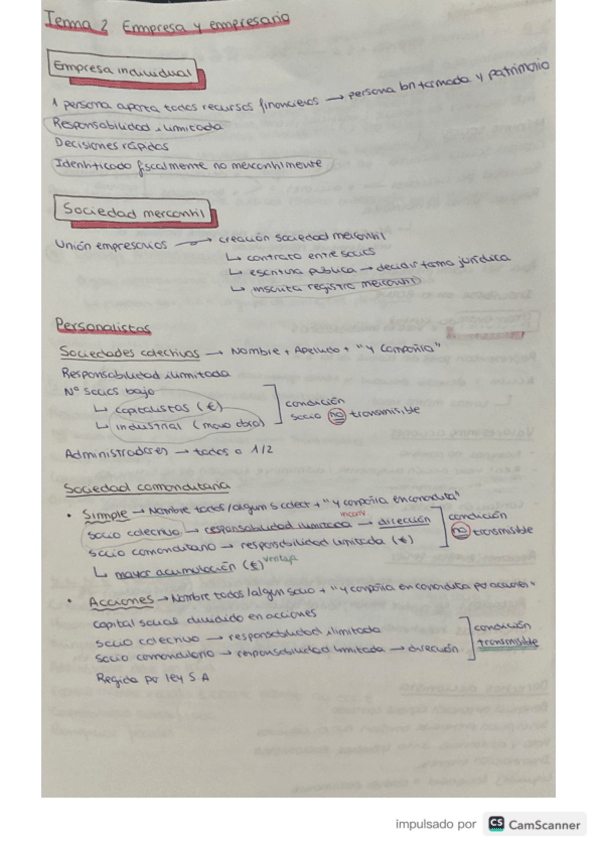 Tema 2 Empresa y empresario
Empresa individual
1 persona aporta todos recursos financieros → persona bn formada y patrimonio
Responsabilidad ilimitada
Decisiones rápidas
Identificado fiscalmente no mercantilmente
Sociedad mercantil
Unión empresarios → creación sociedad mercantil
↳ contrato entre socios
↳ escritura pública → decidir forma jurídica
↳ inscrita registro mercantil
Personalistas
Sociedades colectivas → Nombre + Apellido + "y compañía"
Responsabilidad ilimitada
Nº socios bajo
↳ capitalistas (€)
↳ industrial (mano obra)
condición
socio no transmisible
Administradores → todos o 1/2
Sociedad comanditaria
• Simple → Nombre todos/algun s colect + "y compañía en comandita"
inconv
socio colectivo → responsabilidad ilimitada → dirección
socio comanditario → responsabilidad limitada (€)
condición
no transmisible
↳ mayor acumulación (€) ventaja
• Acciones → Nombre todos/algun socio + "y compañía en comandita por acciones"
capital social dividido en acciones
socio colectivo → responsabilidad ilimitada
socio comanditario → responsabilidad limitada → dirección
condición
transmisible
Regida por ley S A
impulsado por CS CamScanner